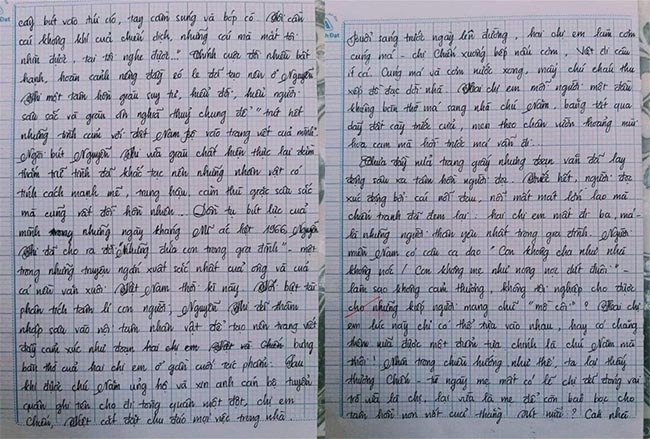 cây bút vào túi áo, tay cầm súng và bóp cò. Tôi cần
cái không khí của chiến dịch, những cái mà mắt tôi
nhìn được, tai tôi nghe được..." Chính cuộc đời nhiều bất
hạnh, hoàn cảnh nông đầy éo le đã tạo nên ở Nguyễn
Thi một tâm hồn giàu suy tư, hiểu đời, hiểu người
sâu sắc và giàu ân nghĩa thuỷ chung để "trút hết
những tình cảm với đất Nam Bộ vào trang viết của mình".
Ngòi bút Nguyễn Thi vừa giàu chất hiện thực lại đằm
thắm trữ tình đã khắc tạc nên những nhân vật có
tính cách mạnh mẽ, trung hậu, căm thù giặc sâu sắc
mà cũng rất đỗi hồn nhiên. Dồn tụ bút lực của
mình trong những ngày kháng Mĩ ác liệt 1966, Nguyễn
Thi đã cho ra đời "Những đứa con trong gia đình" - một
trong những truyện ngắn xuất sắc nhất của ông và của
cả nền văn xuôi Việt Nam thời kì này. Với biệt tài
phân tích tâm lí con người, Nguyễn Thi đã thâm
nhập sâu vào nội tâm nhân vật để tạo nên trang viết
đầy cảm xúc như đoạn hai chị em Việt và Chiến bưng
bàn thờ của hai chị em ở gần cuối tác phẩm. Sau
khi được chú Năm ủng hộ và xin anh cán bộ tuyển
quân ghi tên cho đi tòng quân một đợt, chị em
Chiến, Việt cắt đặt chu đáo mọi việc trong nhà.
Đạt
Buổi sáng trước ngày lên đường, hai chị em làm cơm
cúng má - chị Chiến xuống bếp nấu cơm, Việt đi câu
ít cá. Cúng má và cơm nước xong, mấy chú cháu thu
xếp đồ đạc dời nhà. Hai chị em mỗi người một đầu
khiêng bàn thờ má sang nhà chú Năm, băng tắt qua
dãy đất cày trước cửa, men theo chân vườn thoảng mùi
hoa cam mà hồi trước má vẫn đi.
Chưa đầy nửa trang giấy nhưng đoạn văn đã lay
động sâu xa tâm hồn người đọc. Trước hết, người đọc
xúc động bởi cái nỗi đau, nỗi mất mát lớn lao mà
chiến tranh đã đem lại: hai chị em mất đi ba, má -
là những người thân yêu nhất trong gia đình. Người
miền Nam có câu ca dao "Con không cha như nhà
không nóc / Con không mẹ như nòng nọc đứt đuôi" -
làm sao không cảm thương, không tội nghiệp cho được
cho những kiếp người mang chữ "mồ côi"? Hai chị
em lúc này chỉ có thể tựa vào nhau, hay có chăng
thêm nữa được một điểm tựa chính là chú Năm mà
thôi! Nhìn trong chiều hướng như thế, ta lại thấy
thương Chiến - từ ngày mẹ mất có lẽ chị đã đóng vai
trò vừa là chị, lại vừa là mẹ để còn bao bọc cho
tâm hồn non nớt của thằng Út nữa? Các nhà